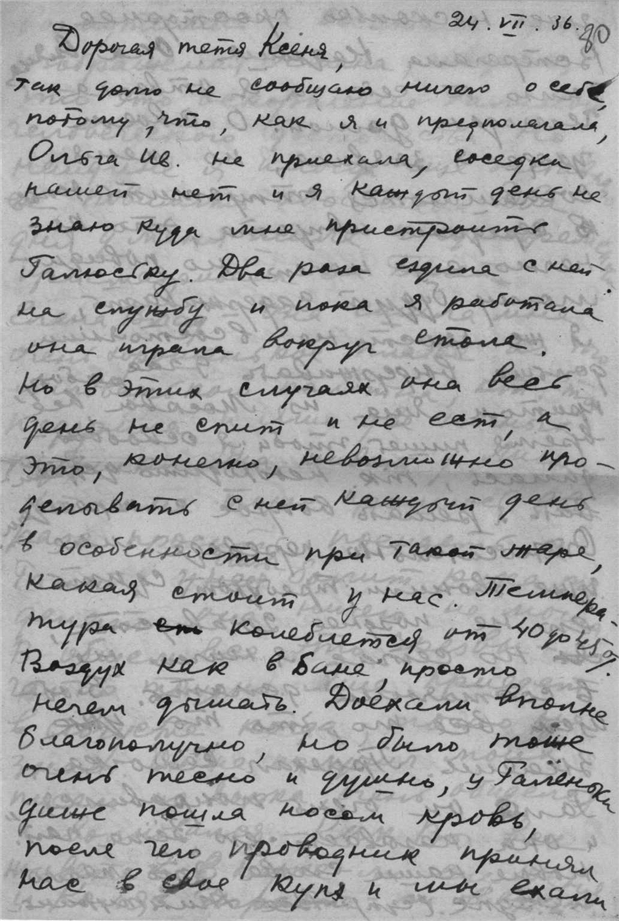 24. VII. 36. 90
Дорогая тетя Ксеня,
так долго не сообщаю ничего о себе,
потому, что, как я и предполагала,
Ольга Ив. не приехала, соседки
нашей нет и я каждый день не
знаю куда мне пристроить
Галюську. Два раза ездила с ней
на службу и пока я работала
она играла вокруг стола.
Но в этих случаях она весь
день не спит и не ест, а
это, конечно, невозможно про-
делывать с ней каждый день
в особенности при такой жаре,
какая стоит у нас. Темпера-
тура ст колеблется от 40 до 45 гр.
Воздух как в бане, просто
нечем дышать. Доехали вполне
благополучно, но было тоже
очень тесно и душно, у Галеньки
даже пошла носом кровь,
после чего проводник принял
нас в свое купэ и мы ехали